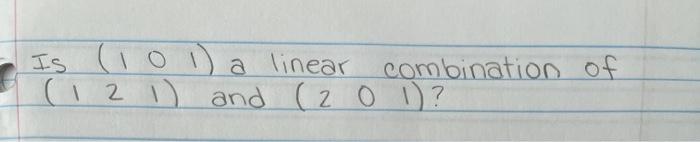 Is (1 0 1) a linear combination of
(1 2 1) and (2 0 1)?